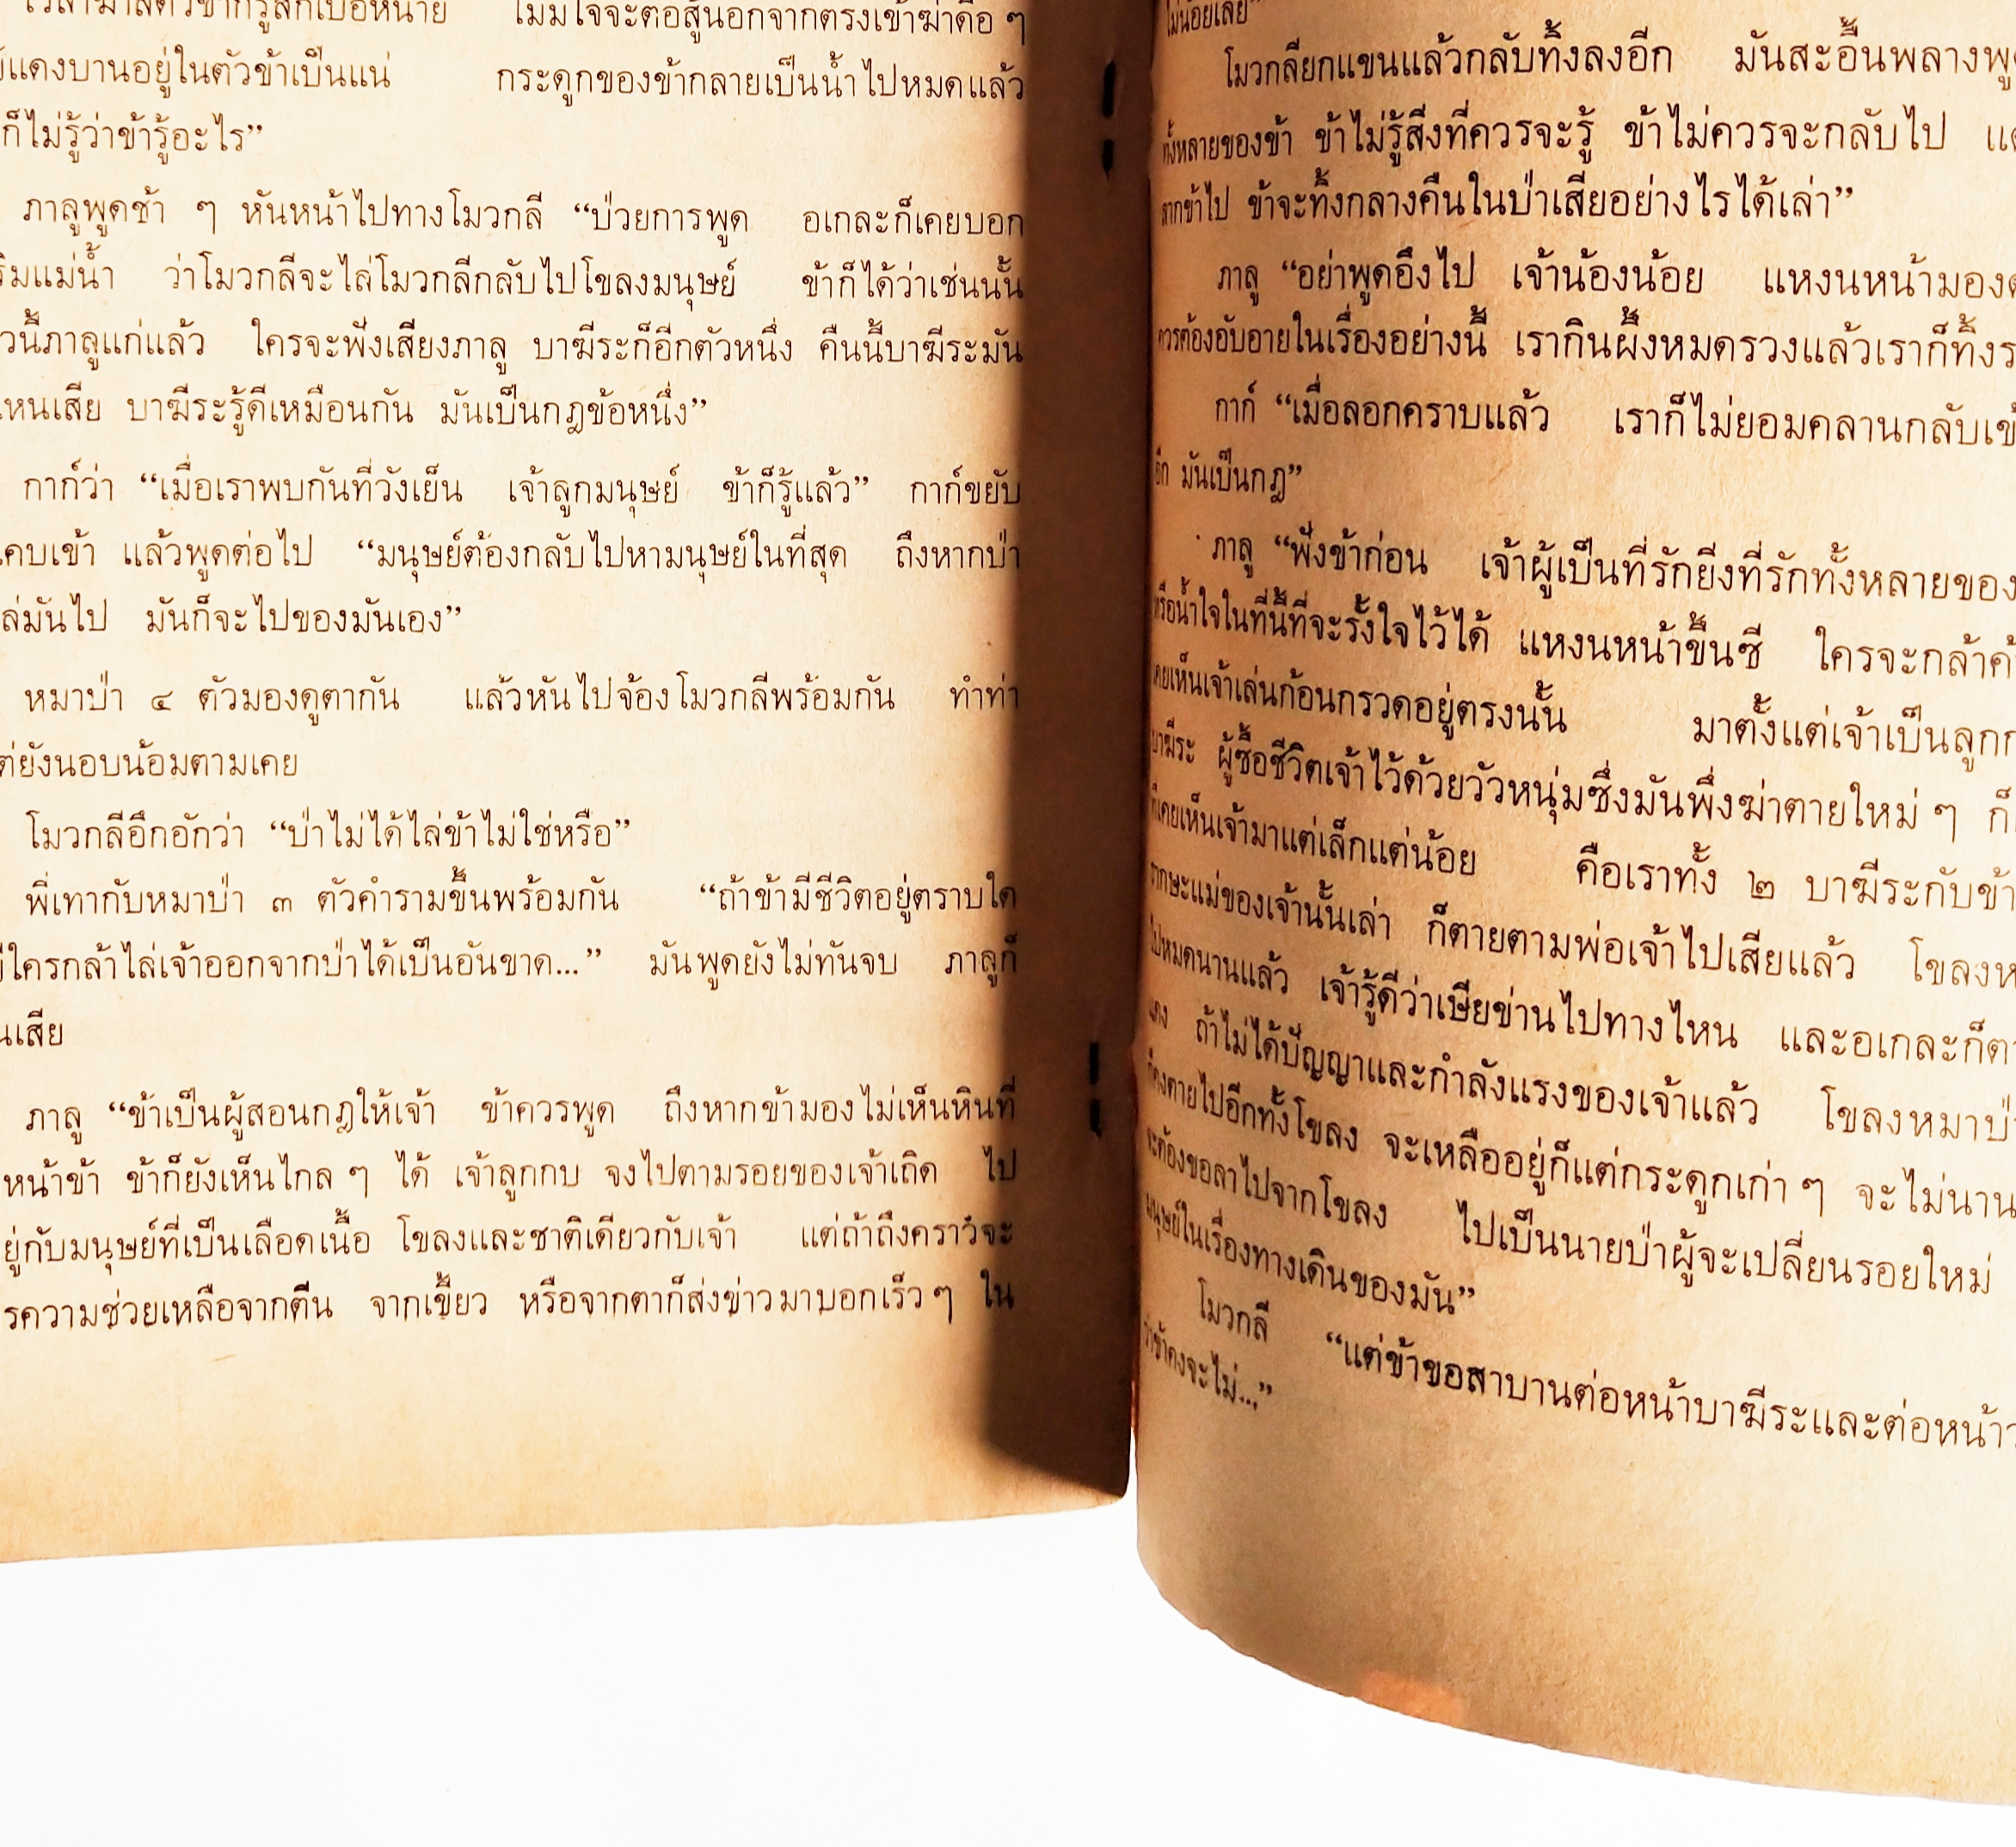 ไม่มีใจจะต่อสู้นอกจากตรงเข้าฆ่าดื้อ ๆ
แดงบานอยู่ในตัวข้าเป็นแน่ กระดูกของข้ากลายเป็นน้ำไปหมดแล้ว
ก็ไม่รู้ว่าข้ารู้อะไร”
ภาลูพูดช้า ๆ หันหน้าไปทางโมวกลี “ป่วยการพูด อเกละก็เคยบอก
ริมแม่น้ำ ว่าโมวกลีจะไล่โมวกลีกลับไปโขลงมนุษย์ ข้าก็ได้ว่าเช่นนั้น
วนี้ภาลูแก่แล้ว ใครจะฟังเสียงภาลู บาฆีระก็อีกตัวหนึ่ง คืนนี้บาฆีระมัน
ไหนเสีย บาฆีระรู้ดีเหมือนกัน มันเป็นกฎข้อหนึ่ง”
กาก์ว่า “เมื่อเราพบกันที่วังเย็น เจ้าลูกมนุษย์ ข้าก็รู้แล้ว” กาก์ขยับ
คบเข้า แล้วพูดต่อไป “มนุษย์ต้องกลับไปหามนุษย์ในที่สุด ถึงหากป่า
ล่มันไป มันก็จะไปของมันเอง”
หมาป่า ๔ ตัวมองดูตากัน แล้วหันไปจ้องโมวกลีพร้อมกัน ทำท่า
ต่ยังนอบน้อมตามเคย
โมวกลีอึกอักว่า “ป่าไม่ได้ไล่ข้าไม่ใช่หรือ”
พี่เทากับหมาป่า ๓ ตัวคำรามขึ้นพร้อมกัน “ถ้าข้ามีชีวิตอยู่ตราบใด
ใครกล้าไล่เจ้าออกจากป่าได้เป็นอันขาด...” มันพูดยังไม่ทันจบ ภาลูก็
นเสีย
ภาลู “ข้าเป็นผู้สอนกฎให้เจ้า ข้าควรพูด ถึงหากข้ามองไม่เห็นหินที่
หน้าข้า ข้าก็ยังเห็นไกล ๆ ได้ เจ้าลูกกบ จงไปตามรอยของเจ้าเถิด ไป
ยู่กับมนุษย์ที่เป็นเลือดเนื้อ โขลงและชาติเดียวกับเจ้า แต่ถ้าถึงคราวจะ
รความช่วยเหลือจากตีน จากเขี้ยว หรือจากตาก็ส่งข่าวมาบอกเร็ว ๆ ใน
ไม่น้อยเลย”
โมวกลียกแขนแล้วกลับทิ้งลงอีก มันสะอื้นพลางพู
ทั้งหลายของข้า ข้าไม่รู้สิ่งที่ควรจะรู้ ข้าไม่ควรจะกลับไป
ลากข้าไป ข้าจะทิ้งกลางคืนในป่าเสียอย่างไรได้เล่า”
ภาลู “อย่าพูดอึงไป เจ้าน้องน้อย แหงนหน้ามอง
ควรต้องอับอายในเรื่องอย่างนี้ เรากินผึ้งหมดรวงแล้วเราก็ทิ้งร
กาก์ “เมื่อลอกคราบแล้ว เราก็ไม่ยอมคลานกลับเข้
อีก มันเป็นกฎ”
ภาลู “ฟังข้าก่อน เจ้าผู้เป็นที่รักยิ่งที่รักทั้งหลายของ
หรือน้ำใจในที่นี้ที่จะรั้งใจไว้ได้ แหงนหน้าขึ้นซี ใครจะกล้าค้
เคยเห็นเจ้าเล่นก้อนกรวดอยู่ตรงนั้น มาตั้งแต่เจ้าเป็นลูกก
บาฆีระ ผู้ซื้อชีวิตเจ้าไว้ด้วยวัวหนุ่มซึ่งมันพึ่งฆ่าตายใหม่ ๆ ก็
ที่เคยเห็นเจ้ามาแต่เล็กแต่น้อย คือเราทั้ง ๒ บาฆีระกับข้า
รากษะแม่ของเจ้านั้นเล่า ก็ตายตามพ่อเจ้าไปเสียแล้ว โขลงห
ไปหมดนานแล้ว เจ้ารู้ดีว่าเษียข่านไปทางไหน และอเกละก็ต
แดง ถ้าไม่ได้ปัญญาและกำลังแรงของเจ้าแล้ว โขลงหมาป่
ก็คงตายไปอีกทั้งโขลง จะเหลืออยู่ก็แต่กระดูกเก่า ๆ จะไม่นาน
จะต้องขอลาไปจากโขลง ไปเป็นนายป่าผู้จะเปลี่ยนรอยใหม่
มนุษย์ในเรื่องทางเดินของมัน”
โมวกลี “แต่ข้าขอสาบานต่อหน้าบาฆีระและต่อหน้า
ว่าข้าคงจะไม่...”